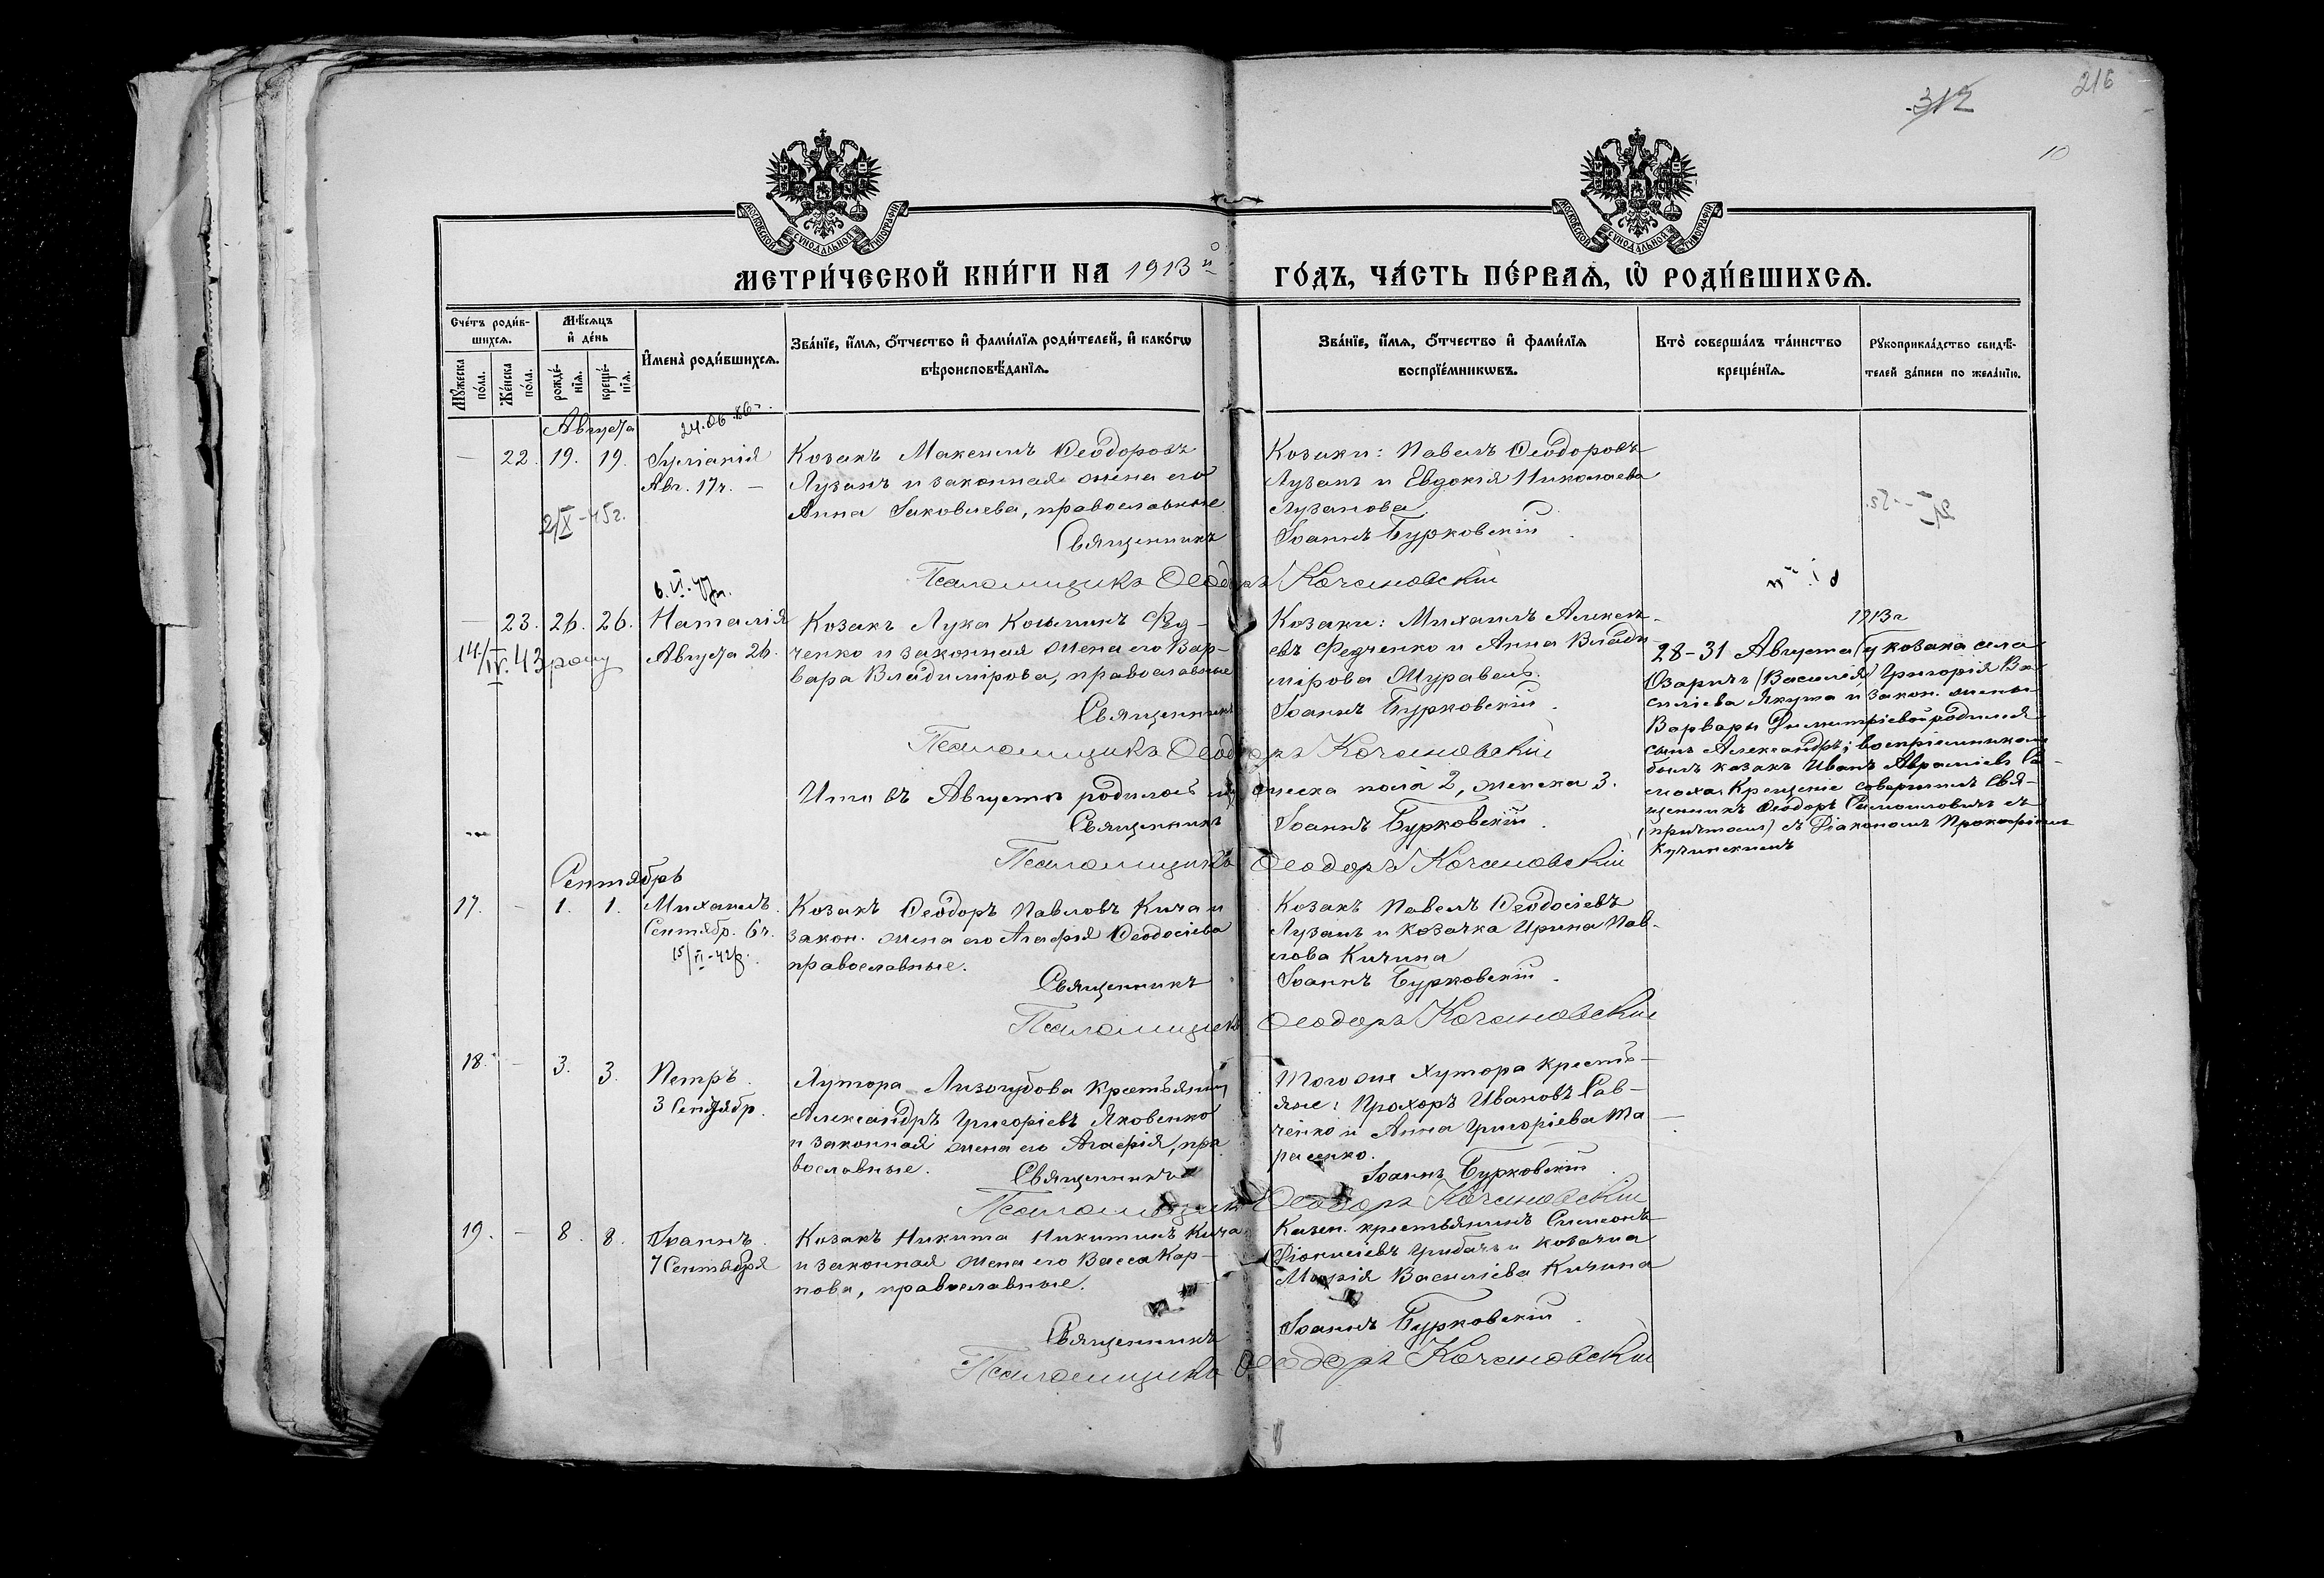 312
216
10
МОСКОВСКОЙ СѴНОДАЛЬНОЙ ТИПОГРАФІИ
МОСКОВСКОЙ СѴНОДАЛЬНОЙ ТИПОГРАФІИ
МЕТРИ́ЧЕСКОЙ КНИ́ГИ НА 1913й ГО́ДЪ, ЧА́СТЬ ПЕ́РВАЯ, Ѡ҆ РОДИ́ВШИХСѦ.
Сче́тъ роди́в-
шихсѧ.
Мꙋ́жеска по́ла.
Же́нска по́ла.
Мѣ́сѧцъ
и҆ де́нь
рожде́-
нїѧ.
креще́-
нїѧ.
И҆мена̀ роди́вшихсѧ.
Зва́нїе, и҆́мѧ, ѻ҆́тчество и҆ фами́лїѧ роди́телей, и҆ како́гѡ
вѣроисповѣ́данїѧ.
Зва́нїе, и҆́мѧ, ѻ҆́тчество и҆ фами́лїѧ
воспрїе́мникѡвъ.
Кто̀ соверша́лъ та́инство
креще́нїѧ.
Рꙋкоприкла́дство свидѣ́-
телей за́писи по жела́нїю.
Августа
24.06.86г.
— 22. 19. 19.
Іуліанія
Авг. 17ч. —
2/X-45г.
Козакъ Максимъ Ѳеодоровъ
Лузанъ и законная жена его
Анна Іаковлева, православные
Козаки: Павелъ Ѳеодоровъ
Лузанъ и Евдокія Николаева
Лузанова.
Священникъ Іоаннъ Бурковскій.
Псаломщикъ Ѳеодоръ Кочановскій
6.VI.47г.
— 23. 26. 26.
14/IV.43 року
Наталія
Августа 26.
Козакъ Лука Козьминъ Фед-
ченко и законная жена его Вар-
вара Владимірова, православные
Козаки: Михаилъ Алексѣ-
евъ Федченко и Анна Влади-
мірова Журавель.
Священникъ Іоаннъ Бурковскій.
Псаломщикъ Ѳеодоръ Кочановскій
1913г
28-31 Августа (у козака села
Озаричъ (Василія) Григорія Ва-
сильева Якута и закон. жены
Варвары Димитріевой родился
сынъ Александръ; воспріемникомъ
былъ козакъ Иванъ Авраміевъ
Крещеніе совершилъ Свя-
щенникъ Ѳеодоръ Самойловичъ съ
(причтомъ) съ Діакономъ Прокофіемъ
Кучинскимъ
Итого въ Августѣ родилось мужеска пола 2, женска 3.
Священникъ Іоаннъ Бурковскій.
Псаломщикъ Ѳеодоръ Кочановскій
Сентябрь
17. — 1. 1.
Михаилъ.
Сентябр. 6ч.
15/VI-42р.
Козакъ Ѳеодоръ Павловъ Кича и
закон. жена его Агафія Ѳеодосіева
православные.
Козакъ Павелъ Ѳеодосіевъ
Лузанъ и козачка Ирина Пав-
лова Кичина
Священникъ Іоаннъ Бурковскій.
Псаломщикъ Ѳеодоръ Кочановскій
18. — 3. 3.
Петръ.
3 Сентябр.
Хутора Лизогубова крестьянинъ
Александръ Григоріевъ Яковенко
и законная жена его Агафія, пра
вославные.
Того же Хутора кресть-
яне: Прохоръ Ивановъ Сав-
ченко и Анна Григоріева Та
расенко.
Священникъ Іоаннъ Бурковскій.
Псаломщикъ Ѳеодоръ Кочановскій
19. — 8. 8.
Іоаннъ.
7 Сентября
Козакъ Никита Никитинъ Кича
и законная жена его Васса Кар-
пова, православные.
Казен. крестьянинъ Симеонъ
Діонисіевъ Грибачъ и козачка
Марія Василіева Кичина
Священникъ Іоаннъ Бурковскій.
Псаломщикъ Ѳеодоръ Кочановскій